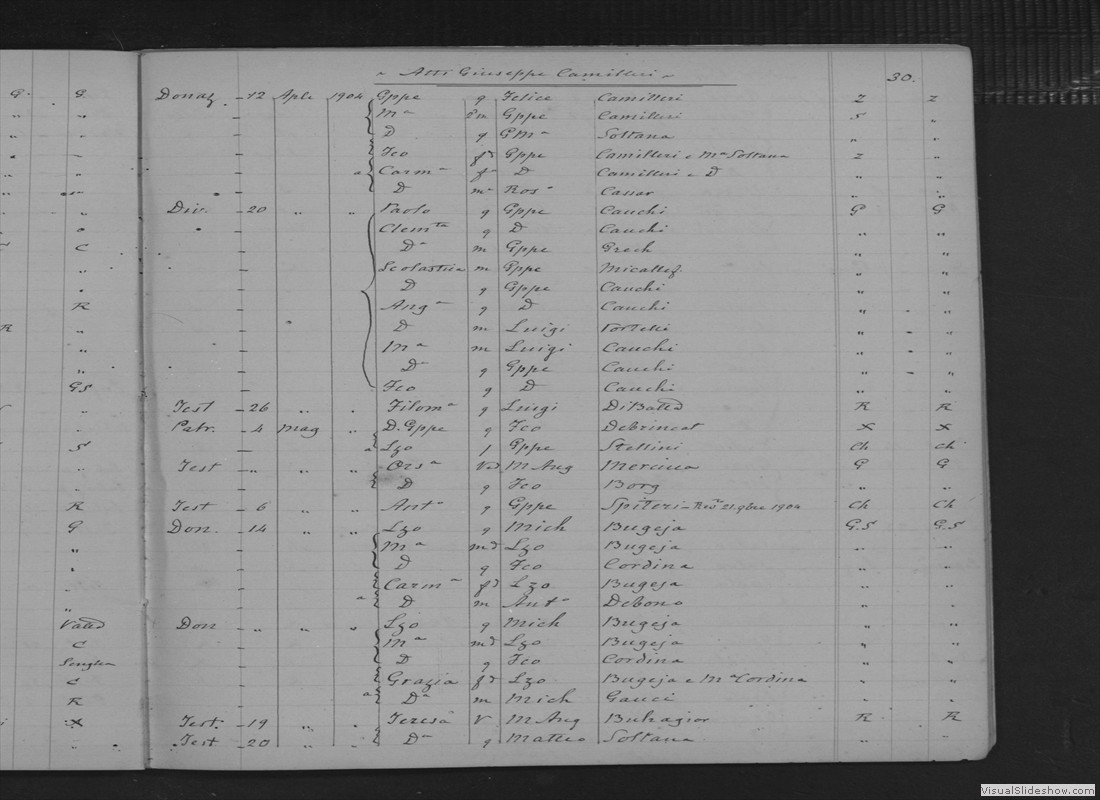 ~ Atti Giuseppe Camilleri ~ 30.
G. G Donaz. 12 Aple 1904 Gppe g Felice Camilleri Z Z
" " - Ma 2m Gppe Camilleri S "
" " - D g GMa Soltana " "
" " - Fco fo Gppe Camilleri e Ma Soltana Z "
" " - a Carma fa D Camilleri e D " "
" " - D m Rosa Cassar " "
" " Div. - 20 " " Paolo g Gppe Cauchi G G
" - Clemta g D Cauchi " "
C - Da m Gppe Grech " "
" - Scolastica m Gppe Micallef " "
" - D g Gppe Cauchi " "
R - Anga g D Cauchi " "
R " - D m Luigi Portelli " "
" - Ma m Luigi Cauchi " "
" - Da g Gppe Cauchi " "
GS - Fco g D Cauchi " "
" Test - 26 " " Filoma g Luigi DiBatta R R
" Patr. - 4 Mag " D. Gppe g Fco Debrincat X X
S - a Lzo f Gppe Stellini Ch Ch
" Test - " " " Orsa Va M Ang Mercieca G G
" - D g Fco Borg " "
R Test - 6 " " Anta g Gppe Spiteri - 21 9bre 1904 Ch Ch
G Don. - 14 " " Lzo g Mich Bugeja G.S G.S
" - Ma md Lzo Bugeja " "
" - D g Fco Cordina " "
" - Carma fa Lzo Bugeja " "
" - a D m Anta Debono " "
Don - " " " Lzo g Mich Bugeja " "
C - Ma md Lzo Bugeja " "
Senglea - D g Fco Cordina " "
C - Grazia fa Lzo Bugeja e Ma Cordina " "
R - a Da m Mich Gauci " "
X Test. - 19 " " Teresa V M Ang Buhagiar R R
" Test - 20 " " Da g Matteo Soltana " "
VisualSlideshow.com